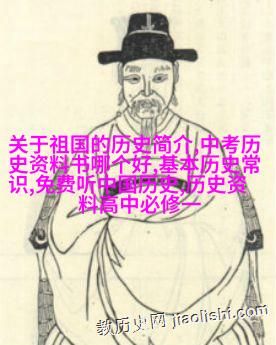 关于祖国的历史简介,中考历
史资料书哪个好,基本历史常
识,免费听中国历史,历史资
料高中必修一
教历史网 jiaolishi.com